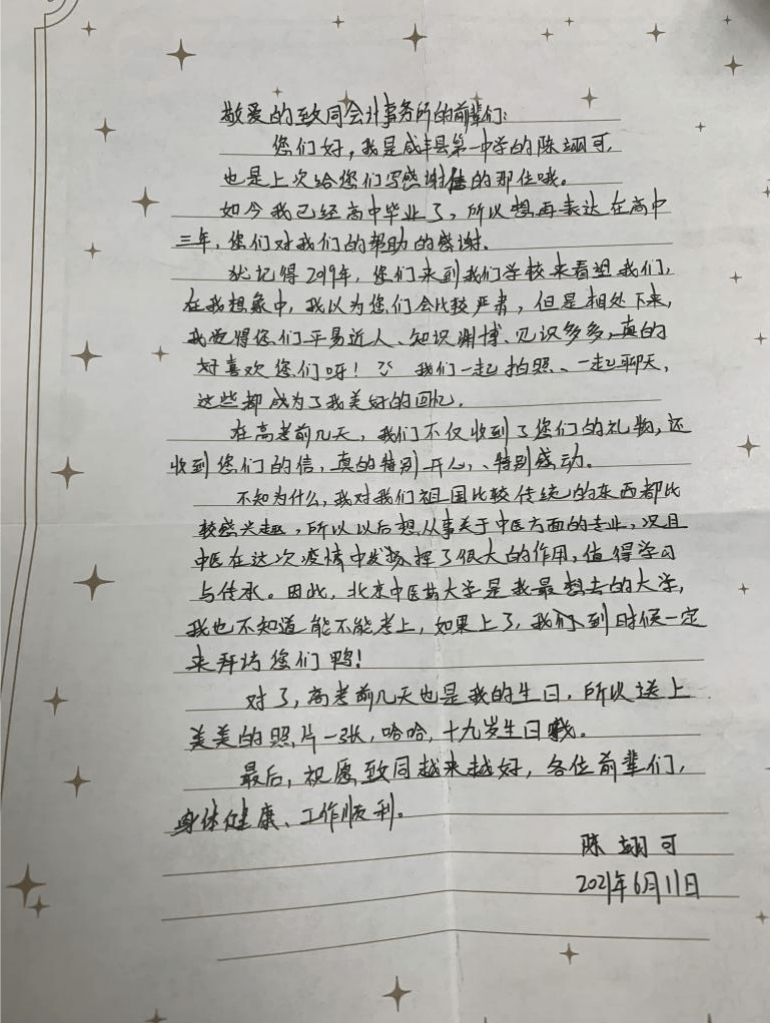 敬爱的致同会计事务所的前辈们:
您们好,我是咸丰县第一中学的陈翊可,
也是上次给您们写感谢信的那位哦。
如今我已经高中毕业了,所以想再表达在高中
三年,您们对我们的帮助的感谢。
犹记得2019年,您们来到我们学校来看望我们,
在我想象中,我以为您们会比较严肃,但是相处下来,
我觉得您们平易近人、知识渊博、见识多多,真的
好喜欢您们呀! 我们一起拍照、一起聊天,
这些都成为了我美好的回忆。
在高考前几天,我们不仅收到了您们的礼物,还
收到您们的信,真的特别开心、特别感动。
不知为什么,我对我们祖国比较传统的东西都比
较感兴趣,所以以后想从事关于中医方面的专业,况且
中医在这次疫情中发挥了很大的作用,值得学习
与传承。因此,北京中医药大学是我最想去的大学,
我也不知道能不能考上,如果上了,我们到时候一定
来拜访您们鸭!
对了,高考前几天也是我的生日,所以送上
美美的照片一张,哈哈,十九岁生日哦。
最后,祝愿致同越来越好,各位前辈们,
身体健康、工作顺利。
陈翊可
2021年6月11日